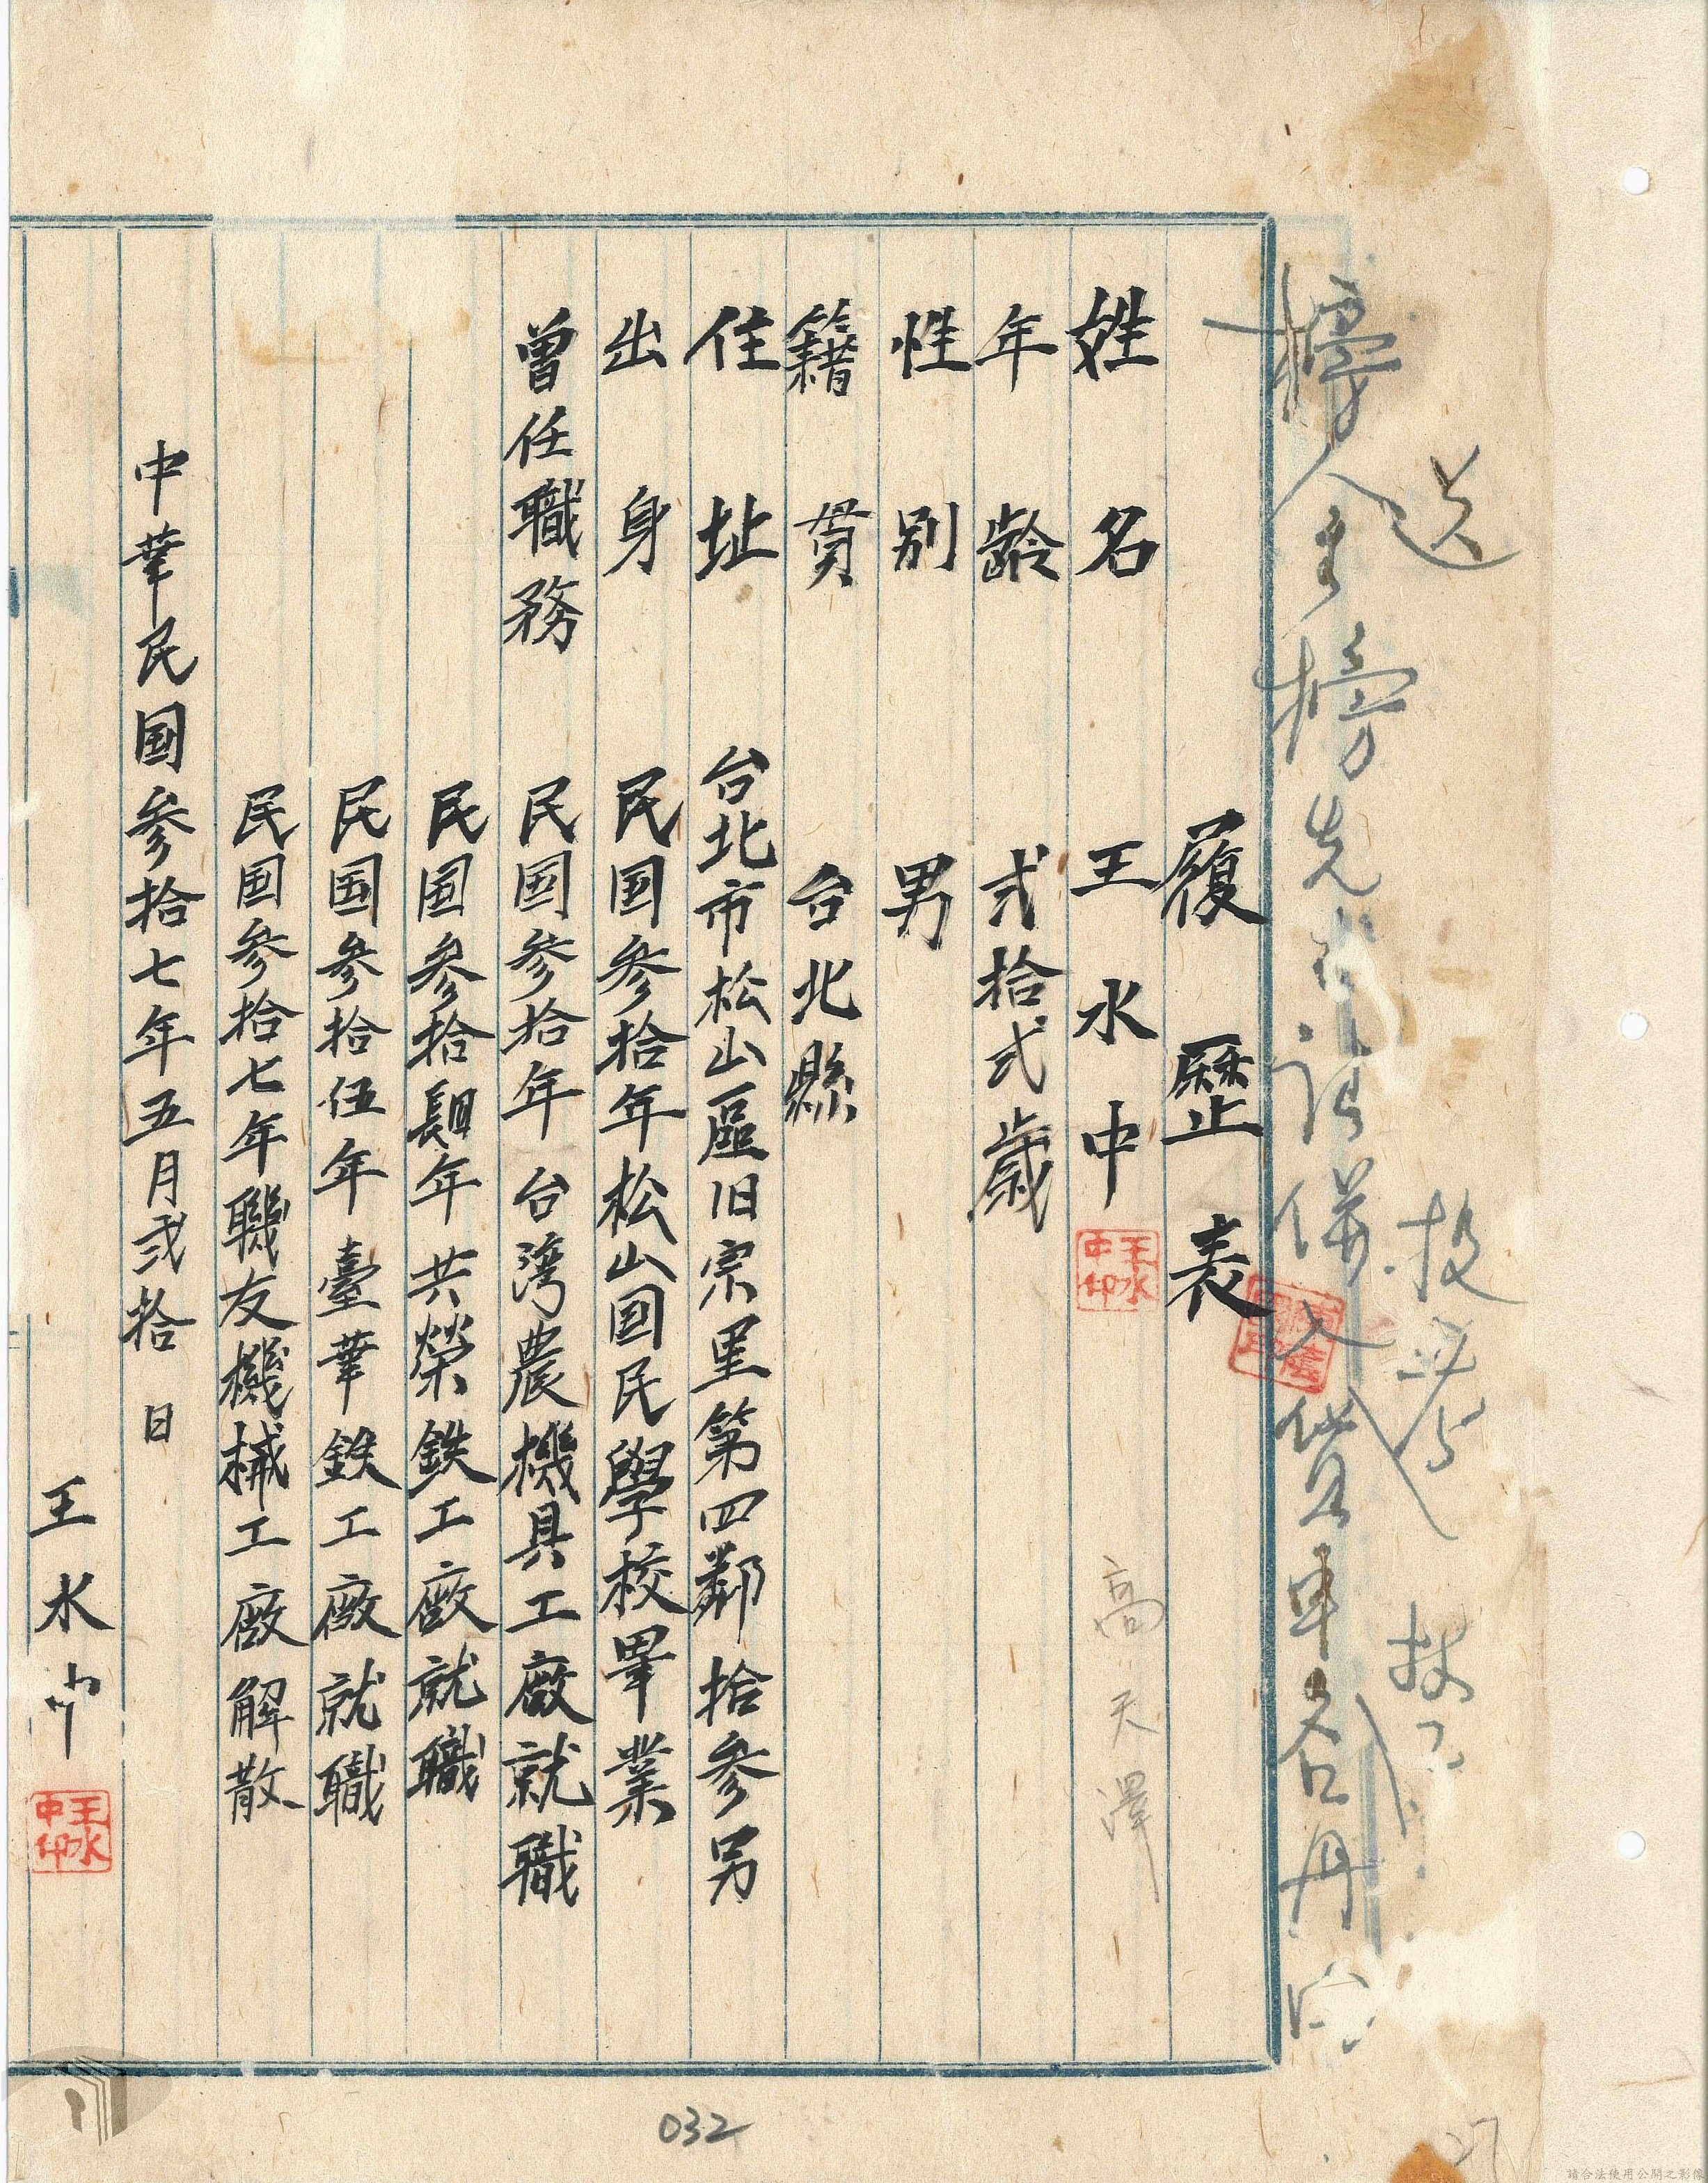 送
履歷表
姓名 王水中
王水中印
年齡 弍拾弍歲
性別 男
籍貫 台北縣
住址 台北市松山區旧宗里第四鄰拾参号
出身 民国参拾年松山国民學校畢業
曾任職務 民国参拾年 台湾農機具工廠就職
民国参拾年 共榮鉄工廠就職
民国参拾伍年 臺華鉄工廠就職
民国参拾七年職友機械工廠解散
中華民国参拾七年五月弍拾日
王水中
王水中印
高天澤
032
27
請合法使用公開之影像